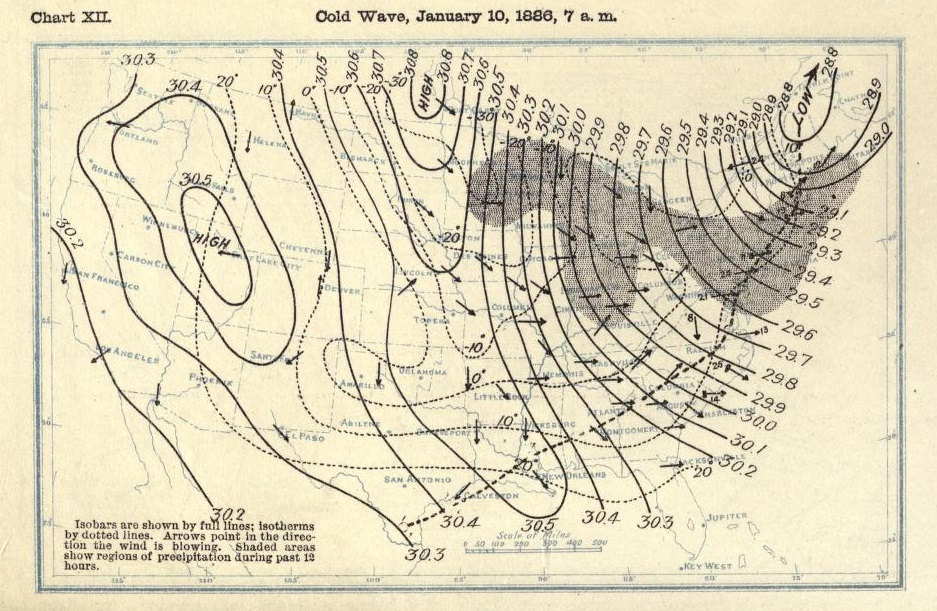 Chart XII.
Cold Wave, January 10, 1886, 7 a. m.
30.3
30.4
20°
10°
30.4
30.5
0°
30.6
-10°
30.7
-20°
-30°
30.8
HIGH
30.8
30.7
30.6
30.5
30.4
30.3
30.2
30.1
30.0
29.9
29.8
29.7
29.6
29.5
29.4
29.3
29.2
29.1
29.0
28.9
28.8
LOW
28.8
28.9
29.0
SEATTLE
PORTLAND
HELENA
HAVRE
BISMARCK
-30°
-20°
10°
ROSEBURG
30.5
HURON
30.2
WINNEMUCCA
HIGH
SALT LAKE CITY
CHEYENNE
-20°
DES MOINES
29.1
29.2
29.3
CARSON CITY
SAN FRANCISCO
DENVER
LINCOLN
29.4
29.5
TOPEKA
COLUMBIA
LOUISVILLE
29.6
LOS ANGELES
SANTA FE
-10°
NASHVILLE
RALEIGH
29.7
PHOENIX
AMARILLO
OKLAHOMA
0°
MEMPHIS
29.8
LITTLE ROCK
ATLANTA
AUGUSTA
CHARLESTON
29.9
30.0
EL PASO
ABILENE
SHREVEPORT
10°
VICKSBURG
MONTGOMERY
30.1
JACKSONVILLE
30.2
20°
20
SAN ANTONIO
GALVESTON
NEW ORLEANS
30.2
30.3
30.4
30.5
30.4
30.3
JUPITER
KEY WEST
Scale of Miles
0 50 100 200 300 400 500
Isobars are shown by full lines; isotherms
by dotted lines. Arrows point in the direc-
tion the wind is blowing. Shaded areas
show regions of precipitation during past 12
hours.